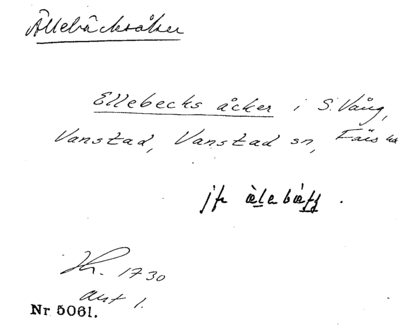 Ällebäcksåker
Ellebecks åcker i S. Vång,
Vanstad, Vanstad sn, Färs hd
jfr
. 1730
akt 1.
Nr 5061.